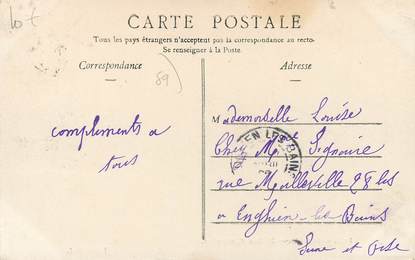 lot
CARTE POSTALE
Tous les pays étrangers n'acceptent pas la correspondance au recto.
Se renseigner à la Poste.
Correspondance
Adresse
89
complements a
tous
Mademoiselle Louise
Chez
rue 28 bis
a Enghien les Bains
Seine et Oise
EN LES BAINS